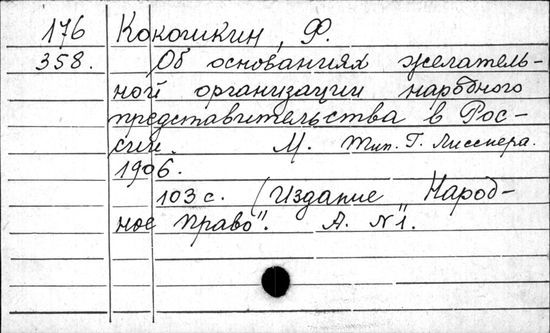 176 Кокошкин, Ф.
358. Об основаниях желатель-
ной организации народного
представительства в Рос-
сии. М. Тип. Г. Лисснера.
1906.
103 с. (Издание „Народ-
ное право". А. №1.